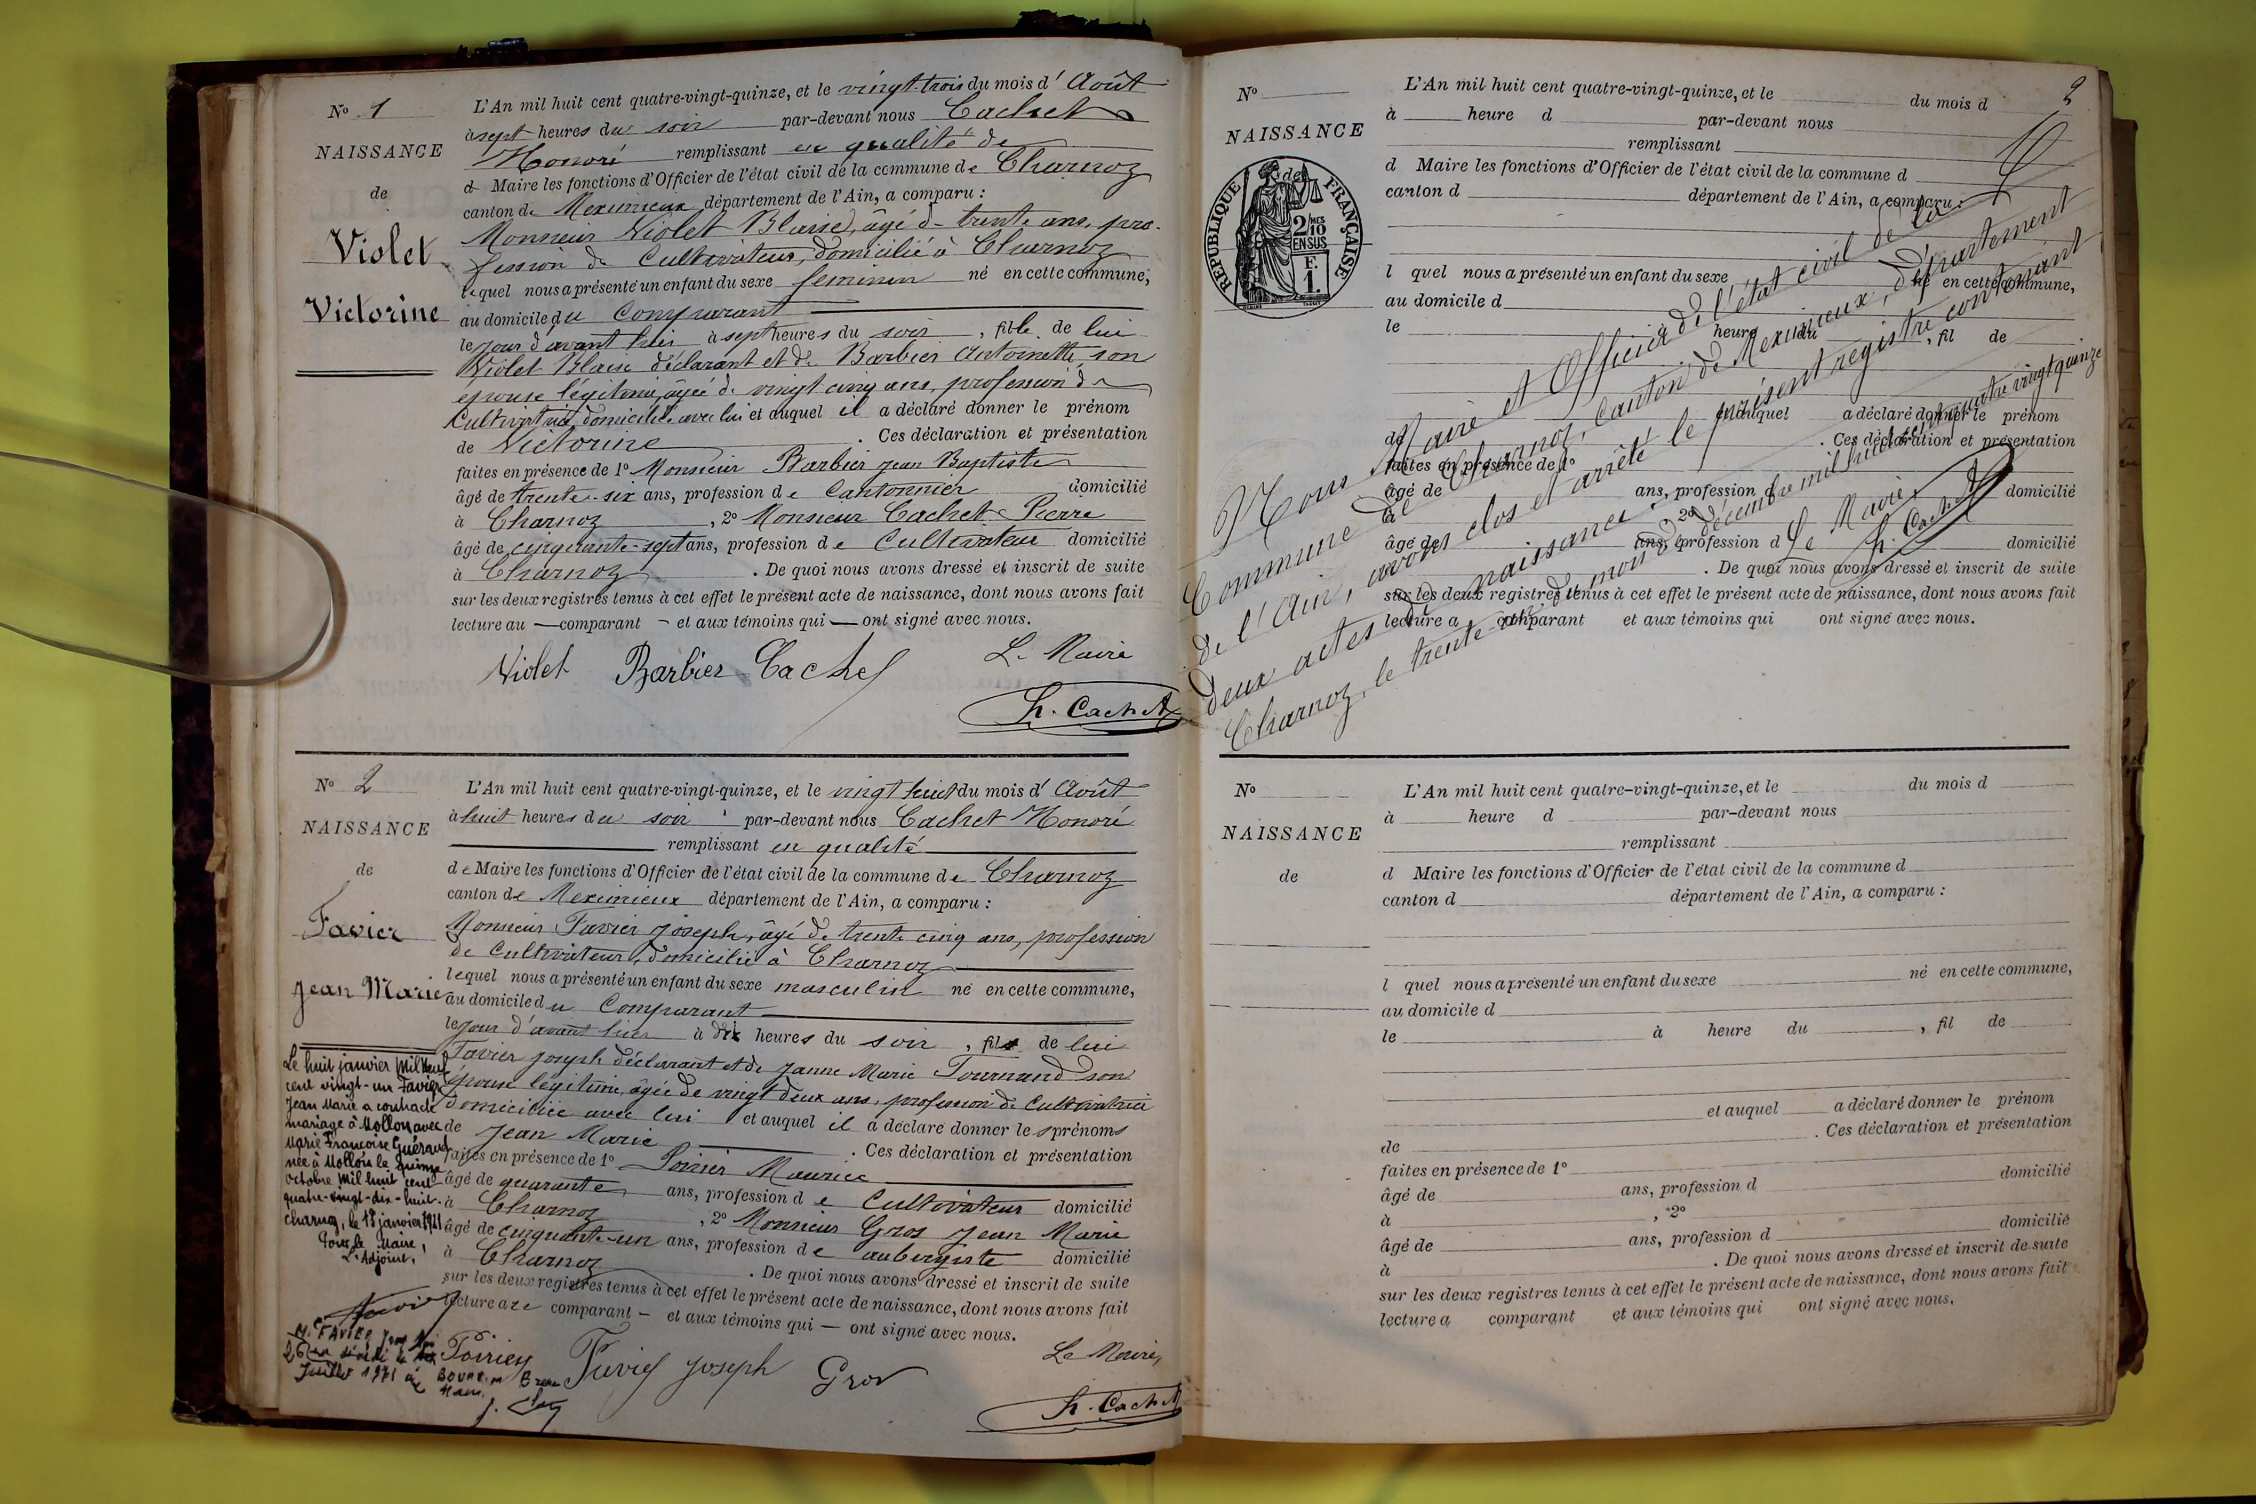 N° 1
NAISSANCE
de
Violet
Victorine
L'An mil huit cent quatre-vingt-quinze, et le vingt-trois du mois d' Août
à sept heures du soir par-devant nous Cachet
Honoré remplissant en qualité de
d Maire les fonctions d'Officier de l'état civil de la commune de Charnoz
canton de Meximieux département de l'Ain, a comparu :
Monsieur Violet Blaise, âgé de trente ans, pro-
fession de Cultivateur, domicilié à Charnoz
lequel nous a présenté un enfant du sexe feminin né en cette commune,
au domicile du Comparant
le jour d'avant hier à sept heures du soir, fille de lui
Violet Blaise déclarant et de Barbier Antoinette son
epouse légitime, âgée de vingt cinq ans, profession de
Cultivatrice, domiciliée avec lui et auquel il a déclaré donner le prénom
de Victorine . Ces déclaration et présentation
faites en présence de 1° Monsieur Barbier Jean Baptiste
âgé de trente-six ans, profession de Cantonnier domicilié
à Charnoz, 2° Monsieur Cachet Pierre
âgé de cinquante-sept ans, profession de Cultivateur domicilié
à Charnoz . De quoi nous avons dressé et inscrit de suite
sur les deux registres tenus à cet effet le présent acte de naissance, dont nous avons fait
lecture au — comparant – et aux témoins qui — ont signé avec nous.
Violet Barbier Cachet Le Maire
h. Cachet
N° 2
NAISSANCE
de
Favier
Jean Marie
L'An mil huit cent quatre-vingt-quinze, et le vingt huit du mois d' Août
à huit heures du soir par-devant nous Cachet Honoré
remplissant en qualité
de Maire les fonctions d'Officier de l'état civil de la commune de Charnoz
canton de Meximieux département de l'Ain, a comparu :
Monsieur Favier Joseph, âgé de trente cinq ans, profession
de Cultivateur, domicilié à Charnoz
lequel nous a présenté un enfant du sexe masculin né en cette commune,
au domicile du Comparant
le jour d'avant hier à dix heures du soir, fils de lui
Favier Joseph déclarant et de Janne Marie Tournand son
épouse légitime, âgée de vingt deux ans, profession de Cultivatrice
domiciliée avec lui et auquel il a déclaré donner les prénoms
de Jean Marie . Ces déclaration et présentation
faites en présence de 1° Poirier Maurice
âgé de quarante ans, profession de Cultivateur domicilié
à Charnoz, 2° Monsieur Gros Jean Marie
âgé de cinquante-un ans, profession de aubergiste domicilié
à Charnoz . De quoi nous avons dressé et inscrit de suite
sur les deux registres tenus à cet effet le présent acte de naissance, dont nous avons fait
lecture au comparant – et aux témoins qui — ont signé avec nous.
Poirier Favier Joseph Gros Le Maire,
h. Cachet
Le huit janvier mil neuf
cent vingt-un Favier
Jean Marie a contracté
mariage à Mollon avec
Marie Françoise Guéraud
née à Mollon le quinze
octobre mil huit cent
quatre-vingt-dix-huit.
Charnoz, le 18 janvier 1921
Pour le Maire,
L'Adjoint,
FAVIER
décédé le
Juillet 1971 à BOURG en Bresse
2
N°
NAISSANCE
de
REPUBLIQUE FRANÇAISE
2/10 MES
EN SUS
F.
1.
L'An mil huit cent quatre-vingt-quinze, et le du mois d
à heure d par-devant nous
remplissant
d Maire les fonctions d'Officier de l'état civil de la commune d
canton d département de l'Ain, a comparu :
l quel nous a présenté un enfant du sexe né en cette commune,
au domicile d
le à heure du , fil de
et auquel a déclaré donner le prénom
de . Ces déclaration et présentation
faites en présence de 1°
âgé de ans, profession d domicilié
à , 2°
âgé de ans, profession d domicilié
à . De quoi nous avons dressé et inscrit de suite
sur les deux registres tenus à cet effet le présent acte de naissance, dont nous avons fait
lecture a comparant et aux témoins qui ont signé avec nous.
Nous Maire et Officier de l'état civil de la
Commune de Charnoz, Canton de Meximieux, département
de l'Ain, avons clos et arrêté le présent registre contenant
deux actes de naissance.
Charnoz, le trente un du mois de décembre mil huit cent quatre vingt quinze
Le Maire,
h. Cachet
N°
NAISSANCE
de
L'An mil huit cent quatre-vingt-quinze, et le du mois d
à heure d par-devant nous
remplissant
d Maire les fonctions d'Officier de l'état civil de la commune d
canton d département de l'Ain, a comparu :
l quel nous a présenté un enfant du sexe né en cette commune,
au domicile d
le à heure du , fil de
et auquel a déclaré donner le prénom
de . Ces déclaration et présentation
faites en présence de 1°
âgé de ans, profession d domicilié
à , 2°
âgé de ans, profession d domicilié
à . De quoi nous avons dressé et inscrit de suite
sur les deux registres tenus à cet effet le présent acte de naissance, dont nous avons fait
lecture a comparant et aux témoins qui ont signé avec nous.